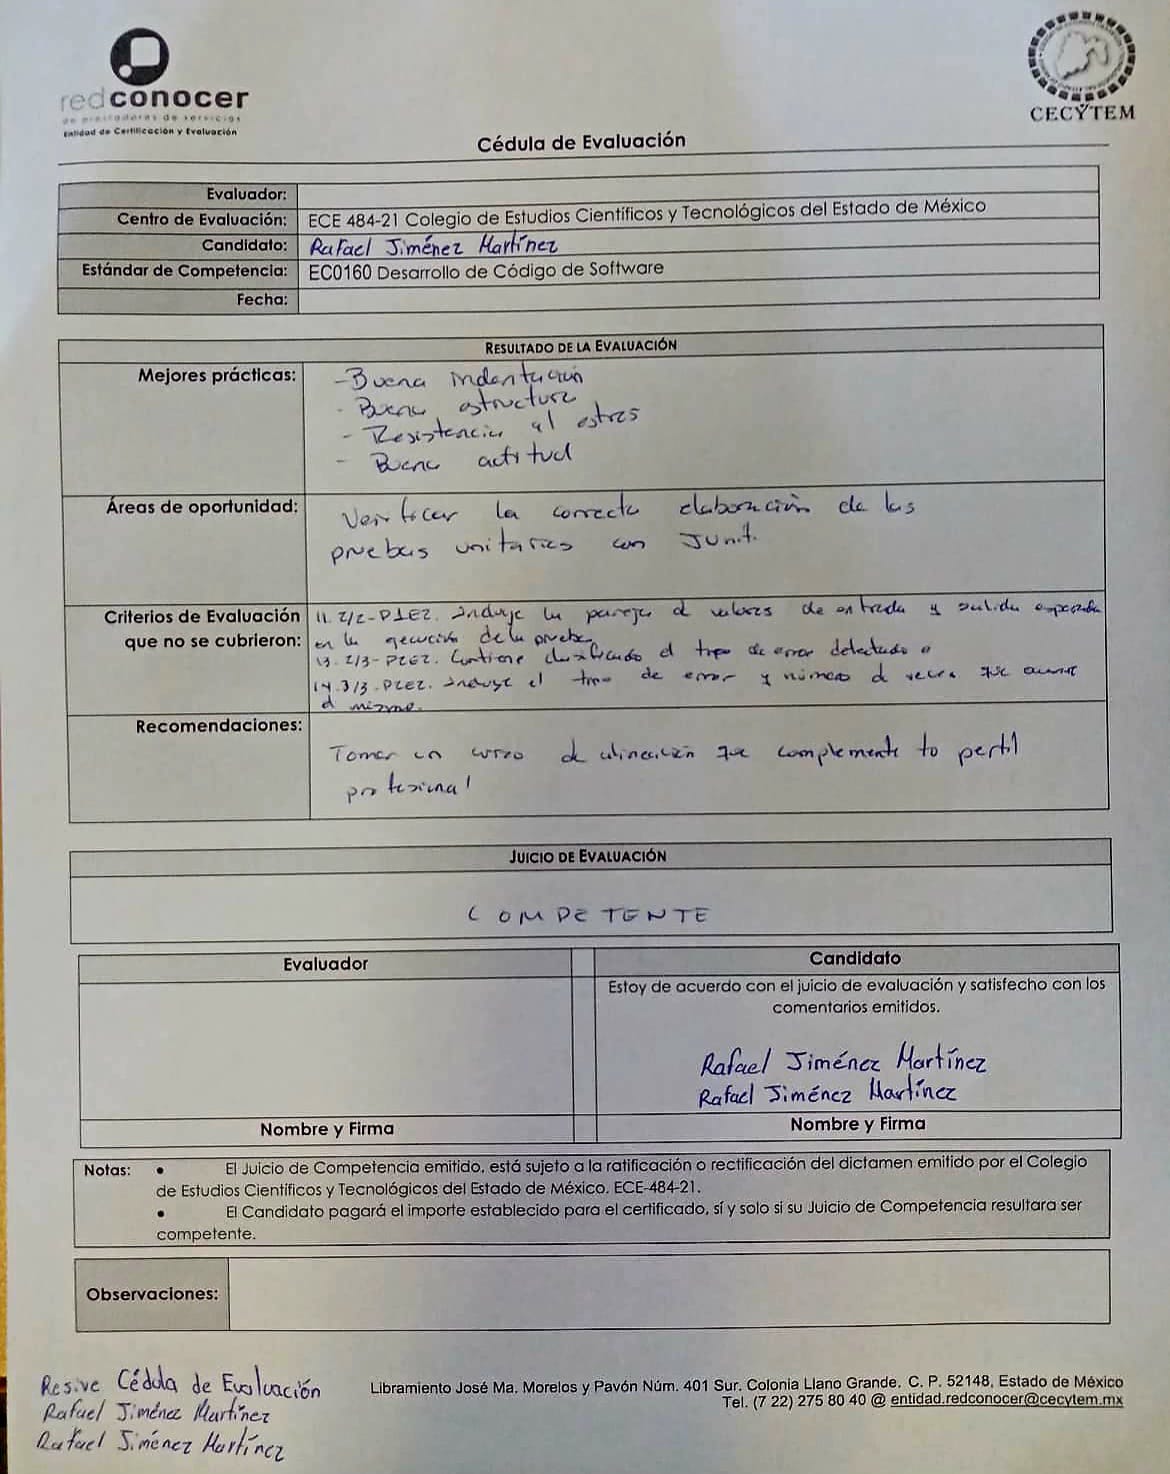 redconocer
de prestadores de servicios
Entidad de Certificación y Evaluación
CECYTEM
Cédula de Evaluación
Evaluador:
Centro de Evaluación: ECE 484-21 Colegio de Estudios Científicos y Tecnológicos del Estado de México
Candidato: Rafael Jiménez Martínez
Estándar de Competencia: EC0160 Desarrollo de Código de Software
Fecha:
RESULTADO DE LA EVALUACIÓN
Mejores prácticas: -Buena indentación
- Buena estructura
- Resistencia al estres
- Buena actitud
Áreas de oportunidad: Verificar la correcta elaboración de las
pruebas unitarias con JUnit.
Criterios de Evaluación que no se cubrieron: 11. 2/2-P1E2. Incluye la pareja d valores de entrada y salida esperada
en la ejecución de la prueba
13. 2/3-P2E2. Contiene clasificado el tipo de error detectado
14. 3/3-P2E2. Incluye el tipo de error y número d veces que ocurre
el mismo.
Recomendaciones: Tomar un curso de alineación que complemente tu perfil
profesional
JUICIO DE EVALUACIÓN
COMPETENTE
Evaluador
Candidato
Estoy de acuerdo con el juicio de evaluación y satisfecho con los
comentarios emitidos.
Rafael Jiménez Martínez
Rafael Jiménez Martínez
Nombre y Firma
Nombre y Firma
Notas: • El Juicio de Competencia emitido, está sujeto a la ratificación o rectificación del dictamen emitido por el Colegio
de Estudios Científicos y Tecnológicos del Estado de México. ECE-484-21.
• El Candidato pagará el importe establecido para el certificado, sí y solo si su Juicio de Competencia resultara ser
competente.
Observaciones:
Resive Cédula de Evaluación
Rafael Jiménez Martínez
Rafael Jiménez Martínez
Libramiento José Ma. Morelos y Pavón Núm. 401 Sur. Colonia Llano Grande. C. P. 52148, Estado de México
Tel. (7 22) 275 80 40 @ entidad.redconocer@cecytem.mx